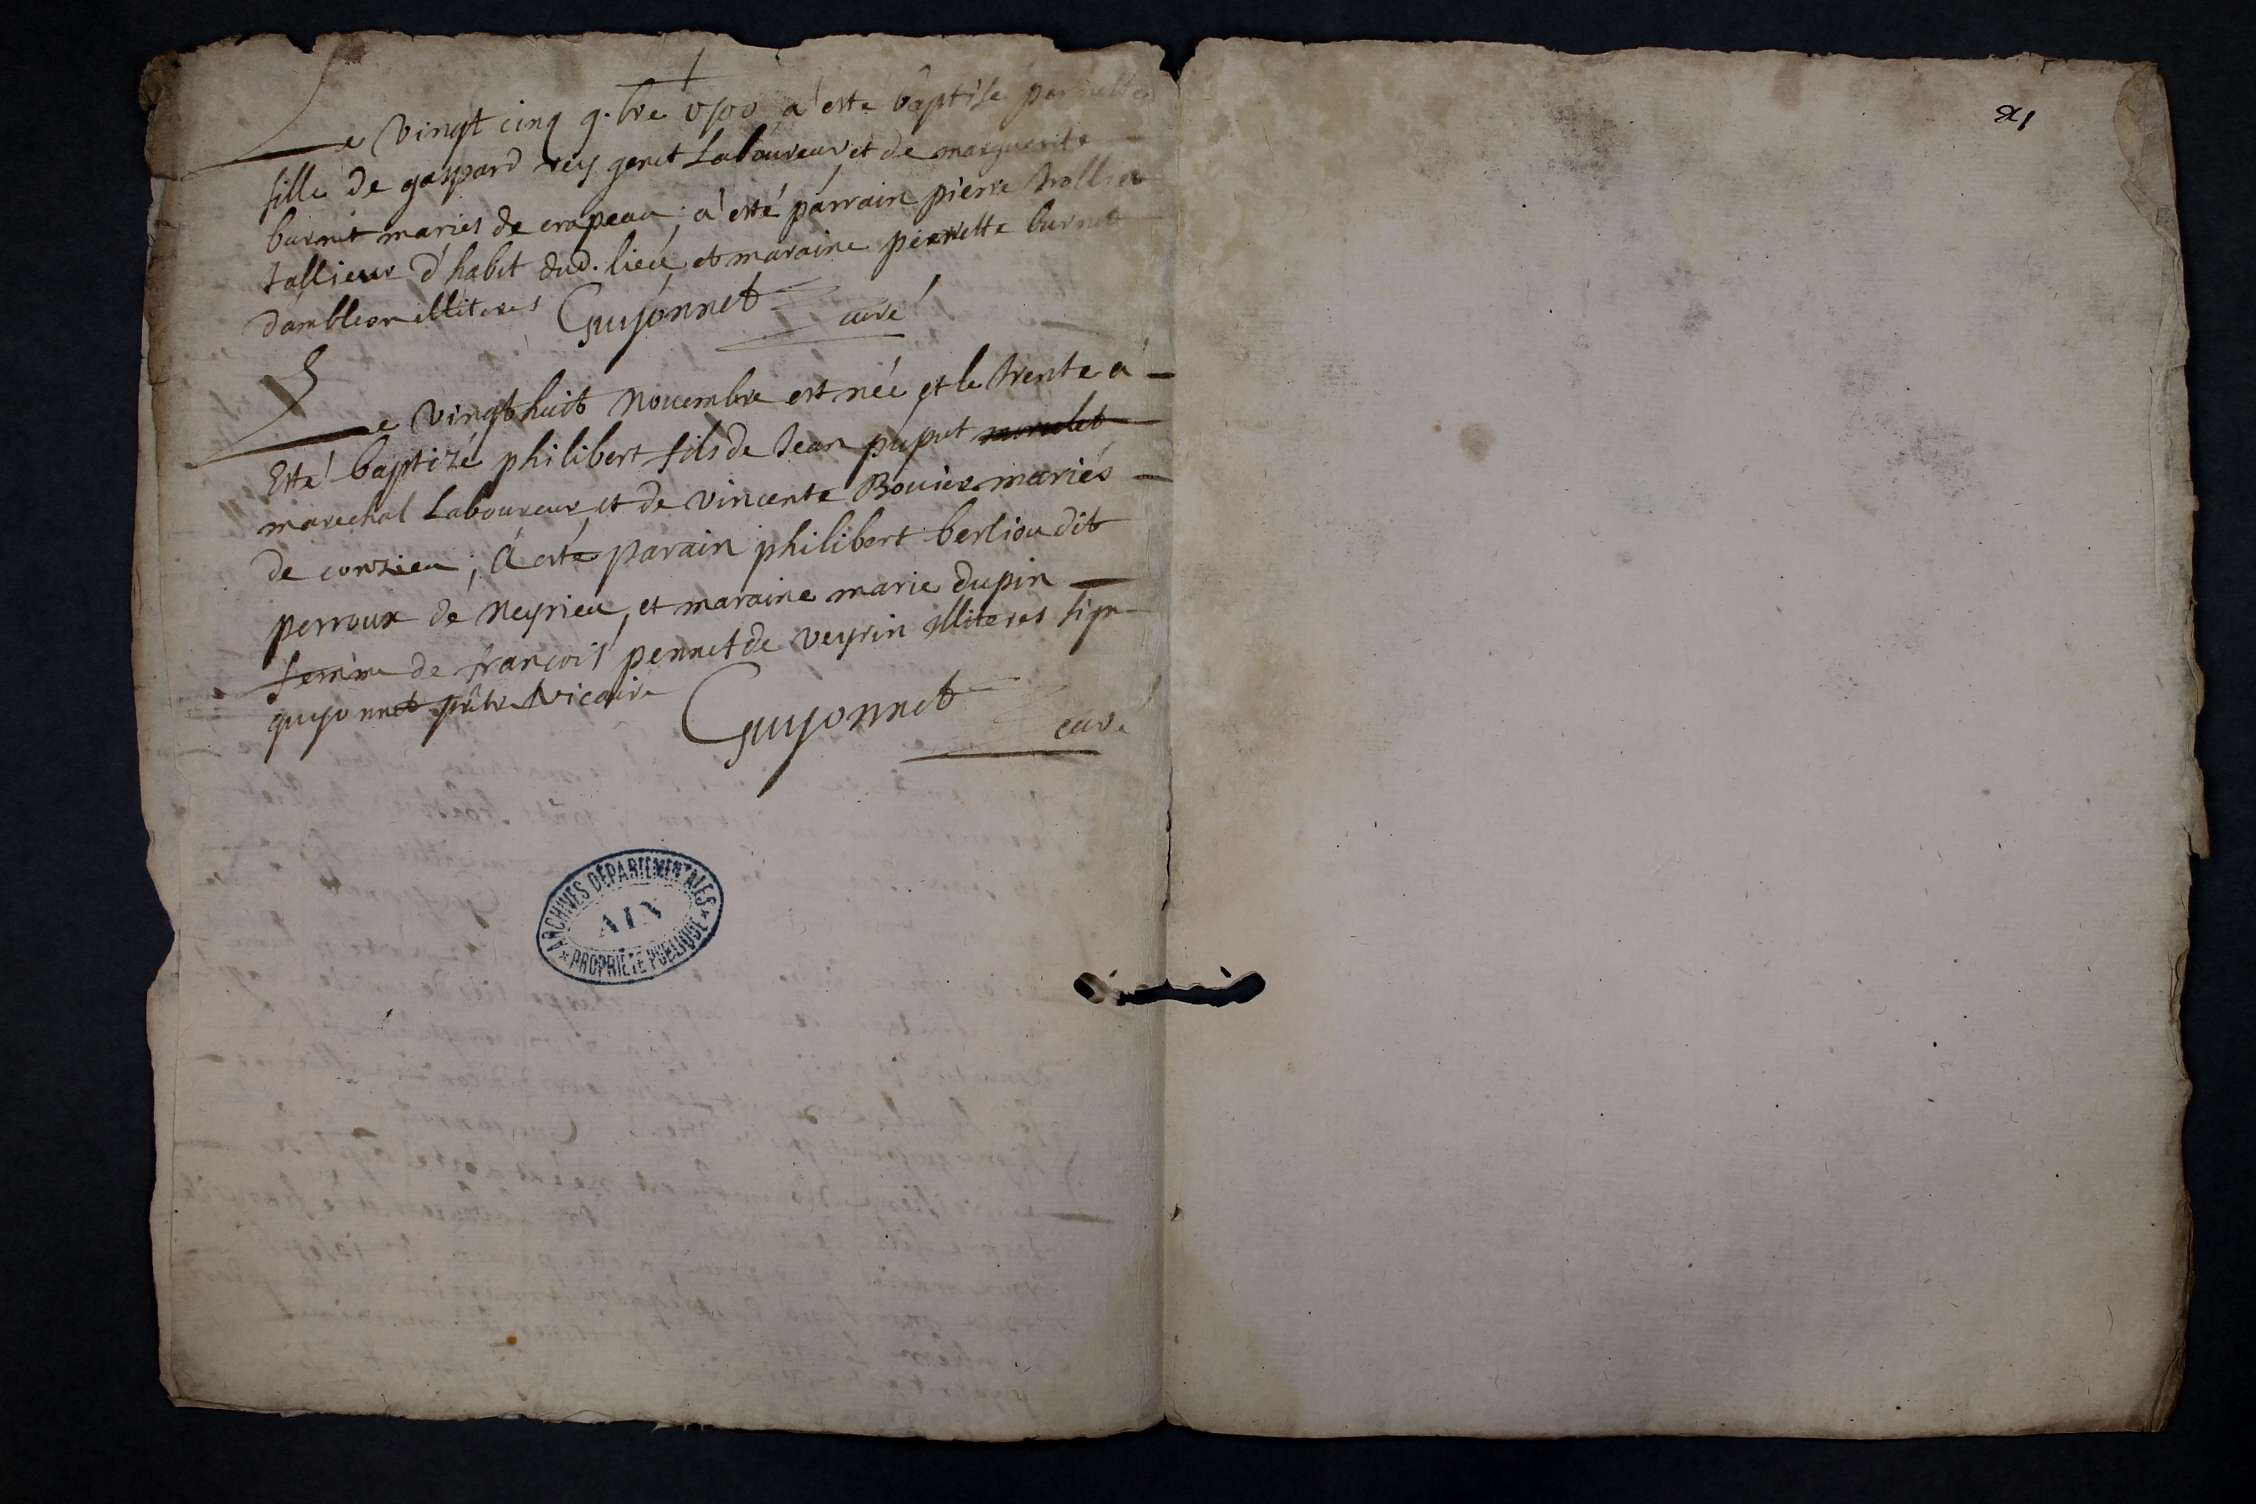 Le vingt cinq 9.bre 1700 a esté baptisé pernette
fille de gaspard rey genet Laboureur et de marguerite
burnet mariés de crapeau; a esté parrain pierre trollie
tallieur d'habit dud. lieu et maraine pernette burnet
d'ambleon illiteres Guyonnet curé
Le vingt huit Novembre est née et le trente a
Esté baptizé philibert fils de Jean puput
marechal Laboureur et de vincente Bouvier mariés
de conzieu; a esté parain philibert berliou dit
perroux de Neyrieu, et maraine marie dupin
femme de francois pennet de veyrin illiteres sign
guyonnet prêtre vicaire Guyonnet curé
ARCHIVES DÉPARTEMENTALES
AIN
PROPRIÉTÉ PUBLIQUE